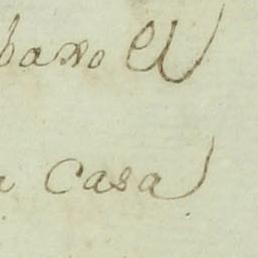 baxo el
a Casa